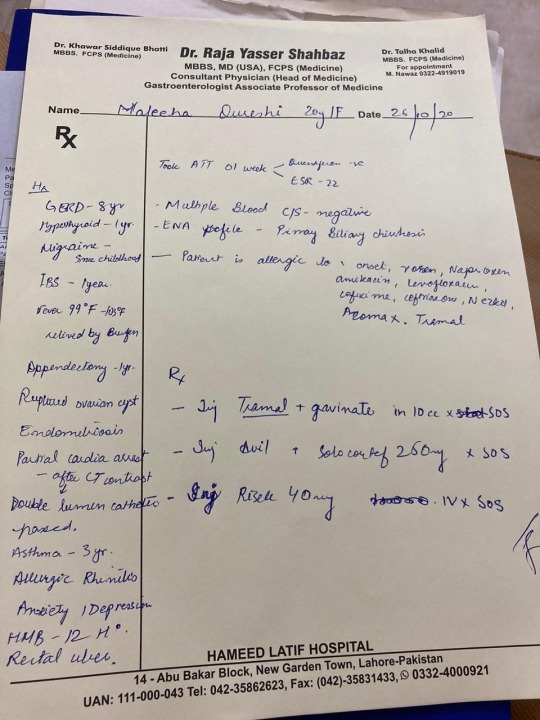 Dr. Khawar Siddique Bhatti
MBBS. FCPS (Medicine)
Dr. Raja Yasser Shahbaz
MBBS, MD (USA), FCPS (Medicine)
Consultant Physician (Head of Medicine)
Gastroenterologist Associate Professor of Medicine
Dr. Talha Khalid
MBBS. FCPS (Medicine)
For appointment
M. Nawaz 0322-4919019
Name Maleeha Qureshi 20y/F Date 26/10/20
Rx
Took ATT 01 week Quantiferon -ve
ESR - 22
- Multiple Blood C/S - negative
- ENA profile - Primay Biliary chirrhosis
- Patient is allergic to : onset, Naproxen
amikacin, Levofloxacin,
cefixime, ceftriaxone,
Azomax. Tramal
Hx
GERD - 8yr
Hypothyroid - 1yr.
Migraine -
since childhood
IBS - 1year.
Fever 99°F - 103°F
relived by Brufen
Appendectomy - 1yr.
Ruptured ovarian cyst
Endometriosis
Partial cardia arrest
- after CT contrast
Double lumen cathetic
passed.
Asthma - 3yr.
Allergic Rhinitis
Anxiety / Depression
Rectal ulcer.
Rx
- Inj Tramal + gavinate in 10cc x SOS
- Inj Avil + Solocortef 250mg x SOS
- Inj Risek 40mg IV x SOS
HAMEED LATIF HOSPITAL
14 - Abu Bakar Block, New Garden Town, Lahore-Pakistan
UAN: 111-000-043 Tel: 042-35862623, Fax: (042)-35831433, 0332-4000921